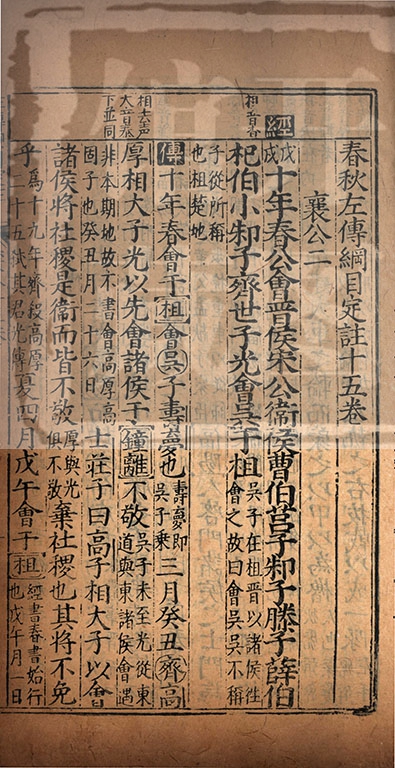 春秋左傳綱目定註十五卷
襄公二
經戊戌十年春公會晉侯宋公衛侯曹伯莒子邾子滕子薛伯
杞伯小邾子齊世子光會吳于柤吳子在柤晉以諸侯往會之故曰會吳吳不稱
子從所稱也柤楚地
傳十年春會于柤會吳子壽夢也壽夢即吳子乘三月癸丑齊高
相去声大音泰下並同
厚相大子光以先會諸侯于鍾離不敬吳子未至光從東道與東諸侯會遇
非本期地故不書會高厚高固子也癸丑月二十六日士莊子曰高子相大子以會
諸侯將社稷是衛而皆不敬厚與光俱不敬棄社稷也其將不免
乎為十九年齊殺高厚二十五弒其君光傳夏四月戊午會于柤經書春書始行也戊午月一日